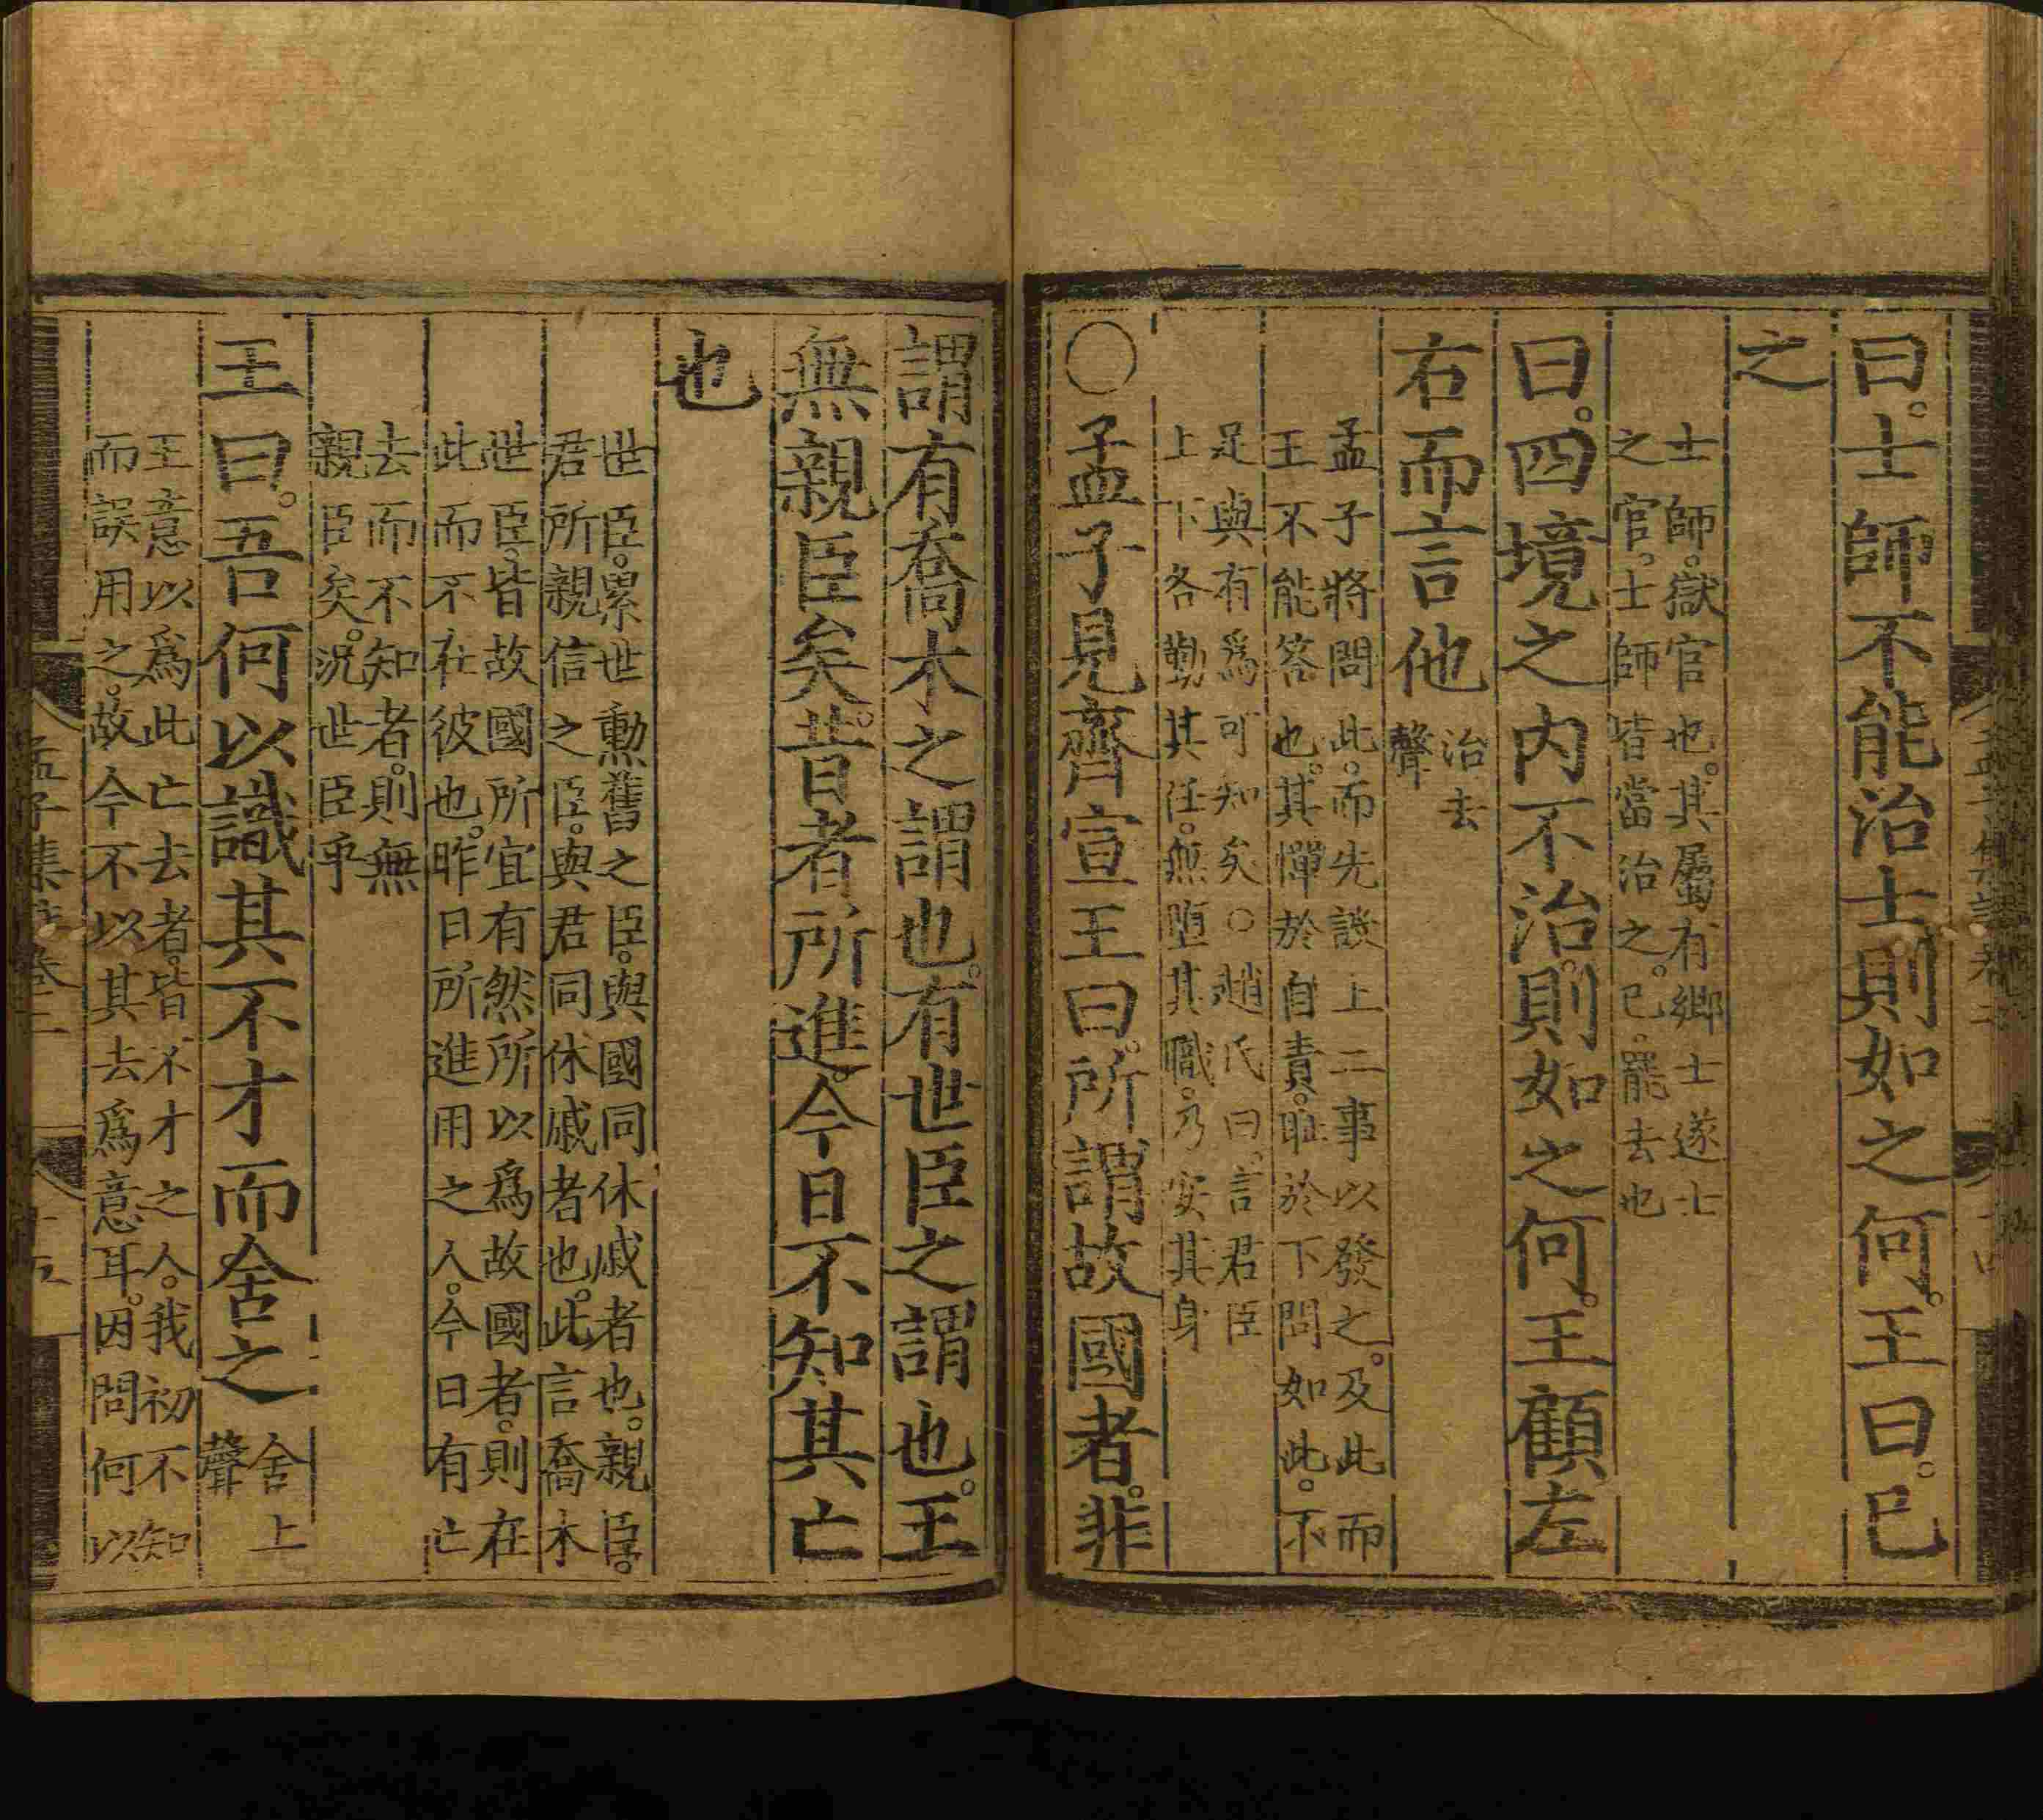 曰。士師不能治士則如之何。王曰。已
之
士師。獄官也。其屬有鄉士遂士
之官。士師皆當治之。已。罷去也
曰。四境之內不治。則如之何。王顧左
右而言他
治去
聲
孟子將問此。而先設上二事以發之。及此而
王不能答也。其憚於自責。恥於下問如此。不
足與有爲可知矣。○趙氏曰。言君臣
上下各勤其任。無墮其職。乃安其身
○孟子見齊宣王曰。所謂故國者。非
謂有喬木之謂也。有世臣之謂也。王
無親臣矣。昔者所進。今日不知其亡
也
世臣。累世勳舊之臣。與國同休戚者也。親臣。
君所親信之臣。與君同休戚者也。此言喬木
世臣。皆故國所宜有然所以爲故國者。則在
此而不在彼也。昨日所進用之人。今日有亡
去而不知者。則無
親臣矣。況世臣乎
王曰。吾何以識其不才而舍之
舍上
聲
王意以爲此亡去者。皆不才之人。我初不知
而誤用之。故今不以其去爲意耳。因問何以
孟子集註卷二
十五